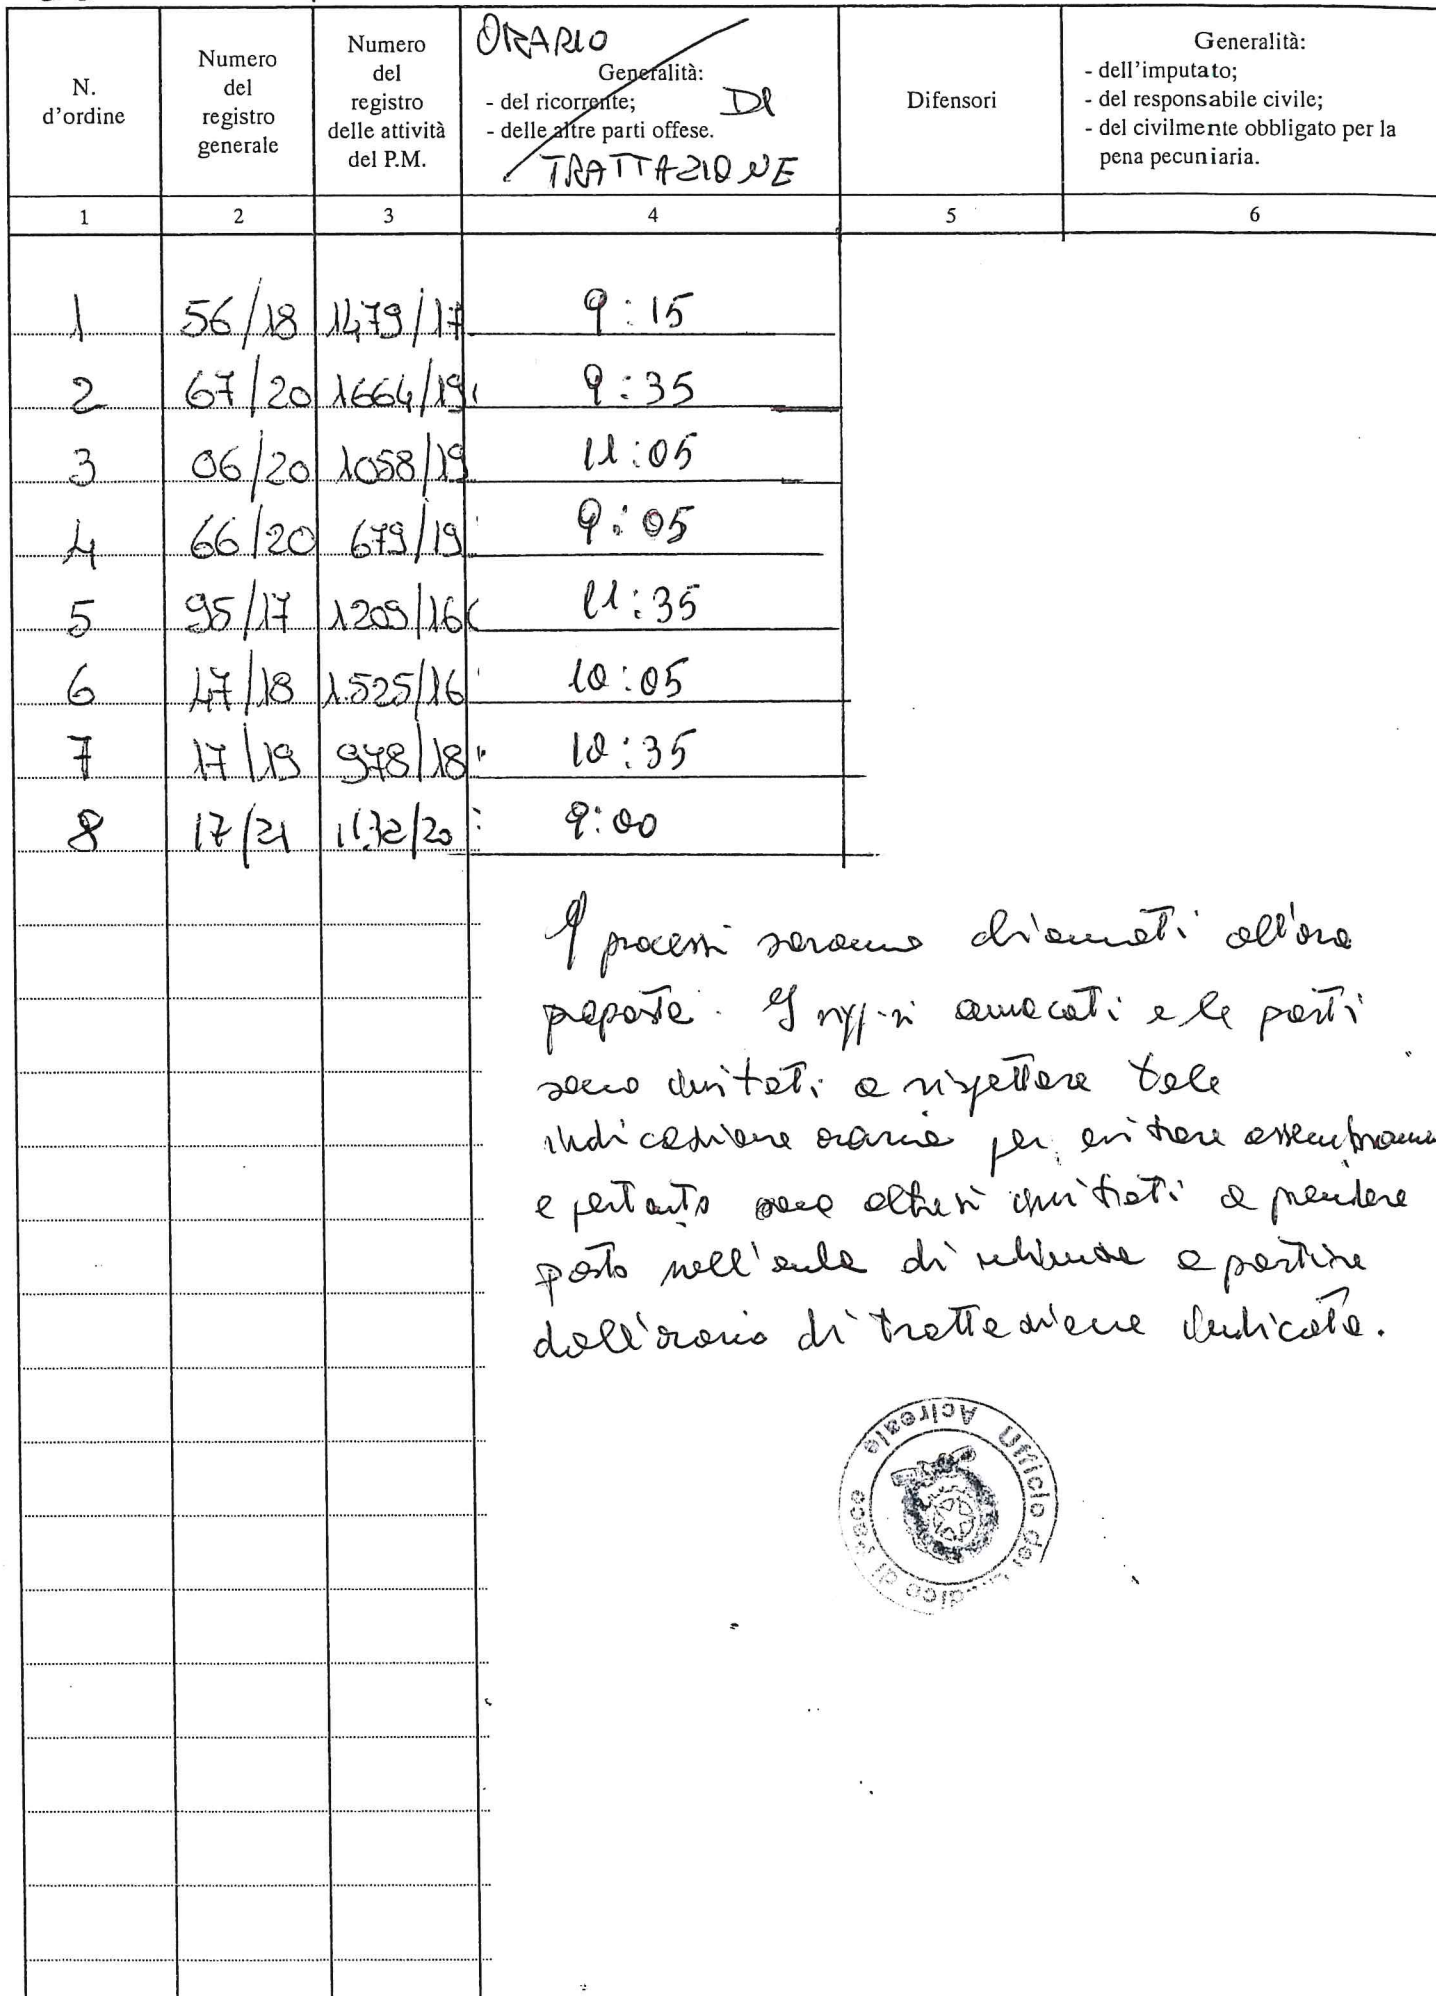 N. d'ordine
Numero del registro generale
Numero del registro delle attività del P.M.
ORARIO DI TRATTAZIONE
Generalità:
- del ricorrente;
- delle altre parti offese.
Difensori
Generalità:
- dell'imputato;
- del responsabile civile;
- del civilmente obbligato per la
pena pecuniaria.
1 2 3 4 5 6
1 56/18 1479/17 9:15
2 67/20 1664/19 9:35
3 06/20 1058/19 11:05
4 66/20 679/19 9:05
5 95/17 1209/16 11:35
6 47/18 1525/16 10:05
7 17/19 978/18 10:35
8 17/21 9:00
I processi saranno chiamati all'ora
preposta. I avvocati e le parti
sono invitati a rispettare tale
indicazione oraria per evitare assembrame
e pertanto sono altresì invitati a prendere
posto nell'aula di udienza a partire
dall'orario di trattazione indicato.
Ufficio del Giudice di Pace Acireale